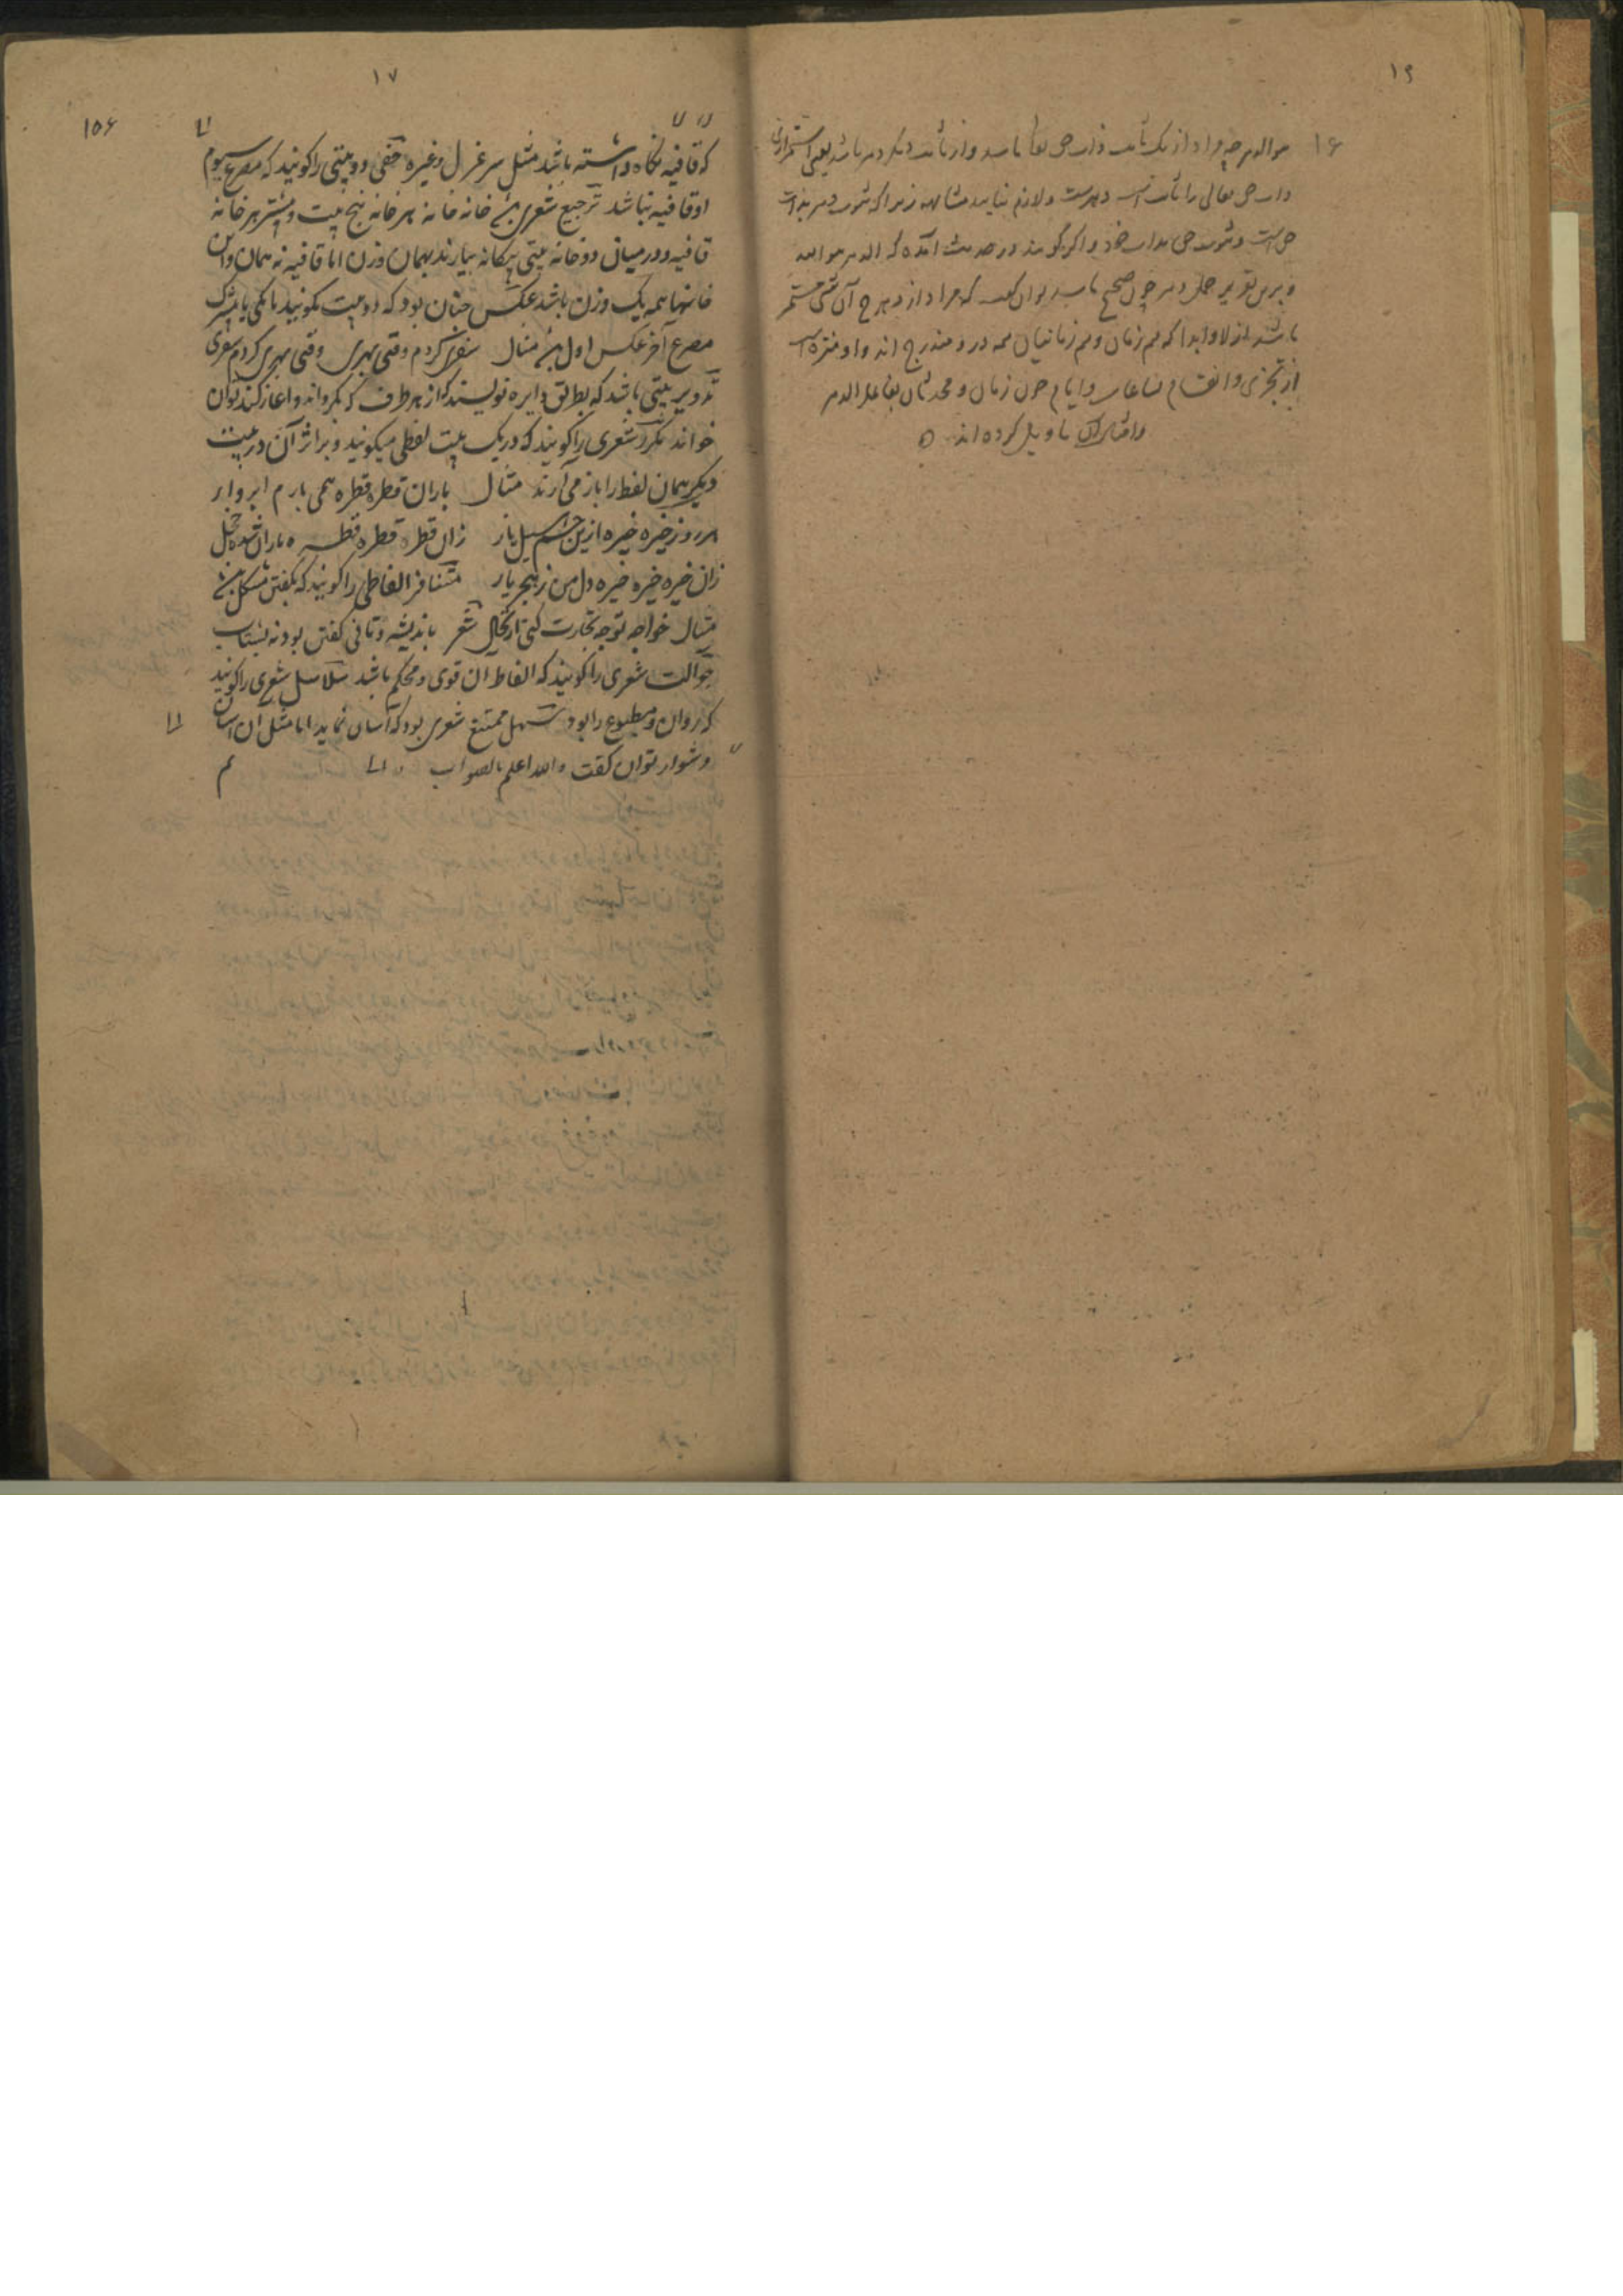 ۱۶
هو الدهر چه مراد از یک ثابت ذات حق باشد و از ثابت دیگر دهر باشد یعنی استمرار
ذات حق تعالی را ثابت است دهرست و لازم نیاید زیرا که ثبوت دهر بذات
حق است و ثبوت حق بذات خود و اگر گویند در حدیث آمده که الدهر هو الله
و برین تقدیر حمل دهر چون صحیح باشد توان گفت که مراد از دهر آن شیٔ مستمر
باشد ازلا و ابدا که هم زمان و هم زمانیان همه درو مندرج اند و او منزه است
از تجزی و انقسام بساعات و ایام چون زمان و محدثان بفاعل الدهر
و امثال آن تاویل کرده اند ه
۱۷
۱۵۶
که قافیه نگاه داشته باشد مثل سر غزل و غیره خفی دو بیتی را گویند که مصرع سیوم
او قافیه نباشد ترجیع شعری خانه خانه هر خانه پنج بیت و بیشتر هر خانه
قافیه و در میان دو خانه بیتی بیگانه بیارند بهمان وزن اما قافیه نه همان و این
خانها همه یک وزن باشد عکس چنان بود که دو بیت بگویند یا یکی یا بیشتر که
مصرع آخر عکس اول مثال سفری کردم وقتی بهری وقتی بهری کردم سفری
تدویر بیتی باشد که بطریق دایره نویسند که از هر طرف که بگرداند و آغاز کند توان
خواند مکرر شعری را گویند که در یک بیت لفظی میگویند و بر اثر آن در بیت
دیگر همان لفظ را باز می آرند مثال باران قطره قطره همی بارم ابر وار
هر روز خیره خیره ازین چشم سیل بار زان قطره قطره قطره باران شده خجل
زان خیره خیره خیره دل من ز هجر یار متنافر الفاظی را گویند که بگفتن مشکل
مثال خواجه تو چه تجارت کنی ارتجال شعر باندیشه و تانی گفتن بود نه بشتاب
جوالت شعری را گویند که الفاظ آن قوی و محکم باشد سلاسل شعری را گویند
که روان و مطبوع را بود سهل ممتنع شعری بود که آسان نماید اما مثل آن آسان
دشوار توان گفت والله اعلم بالصواب